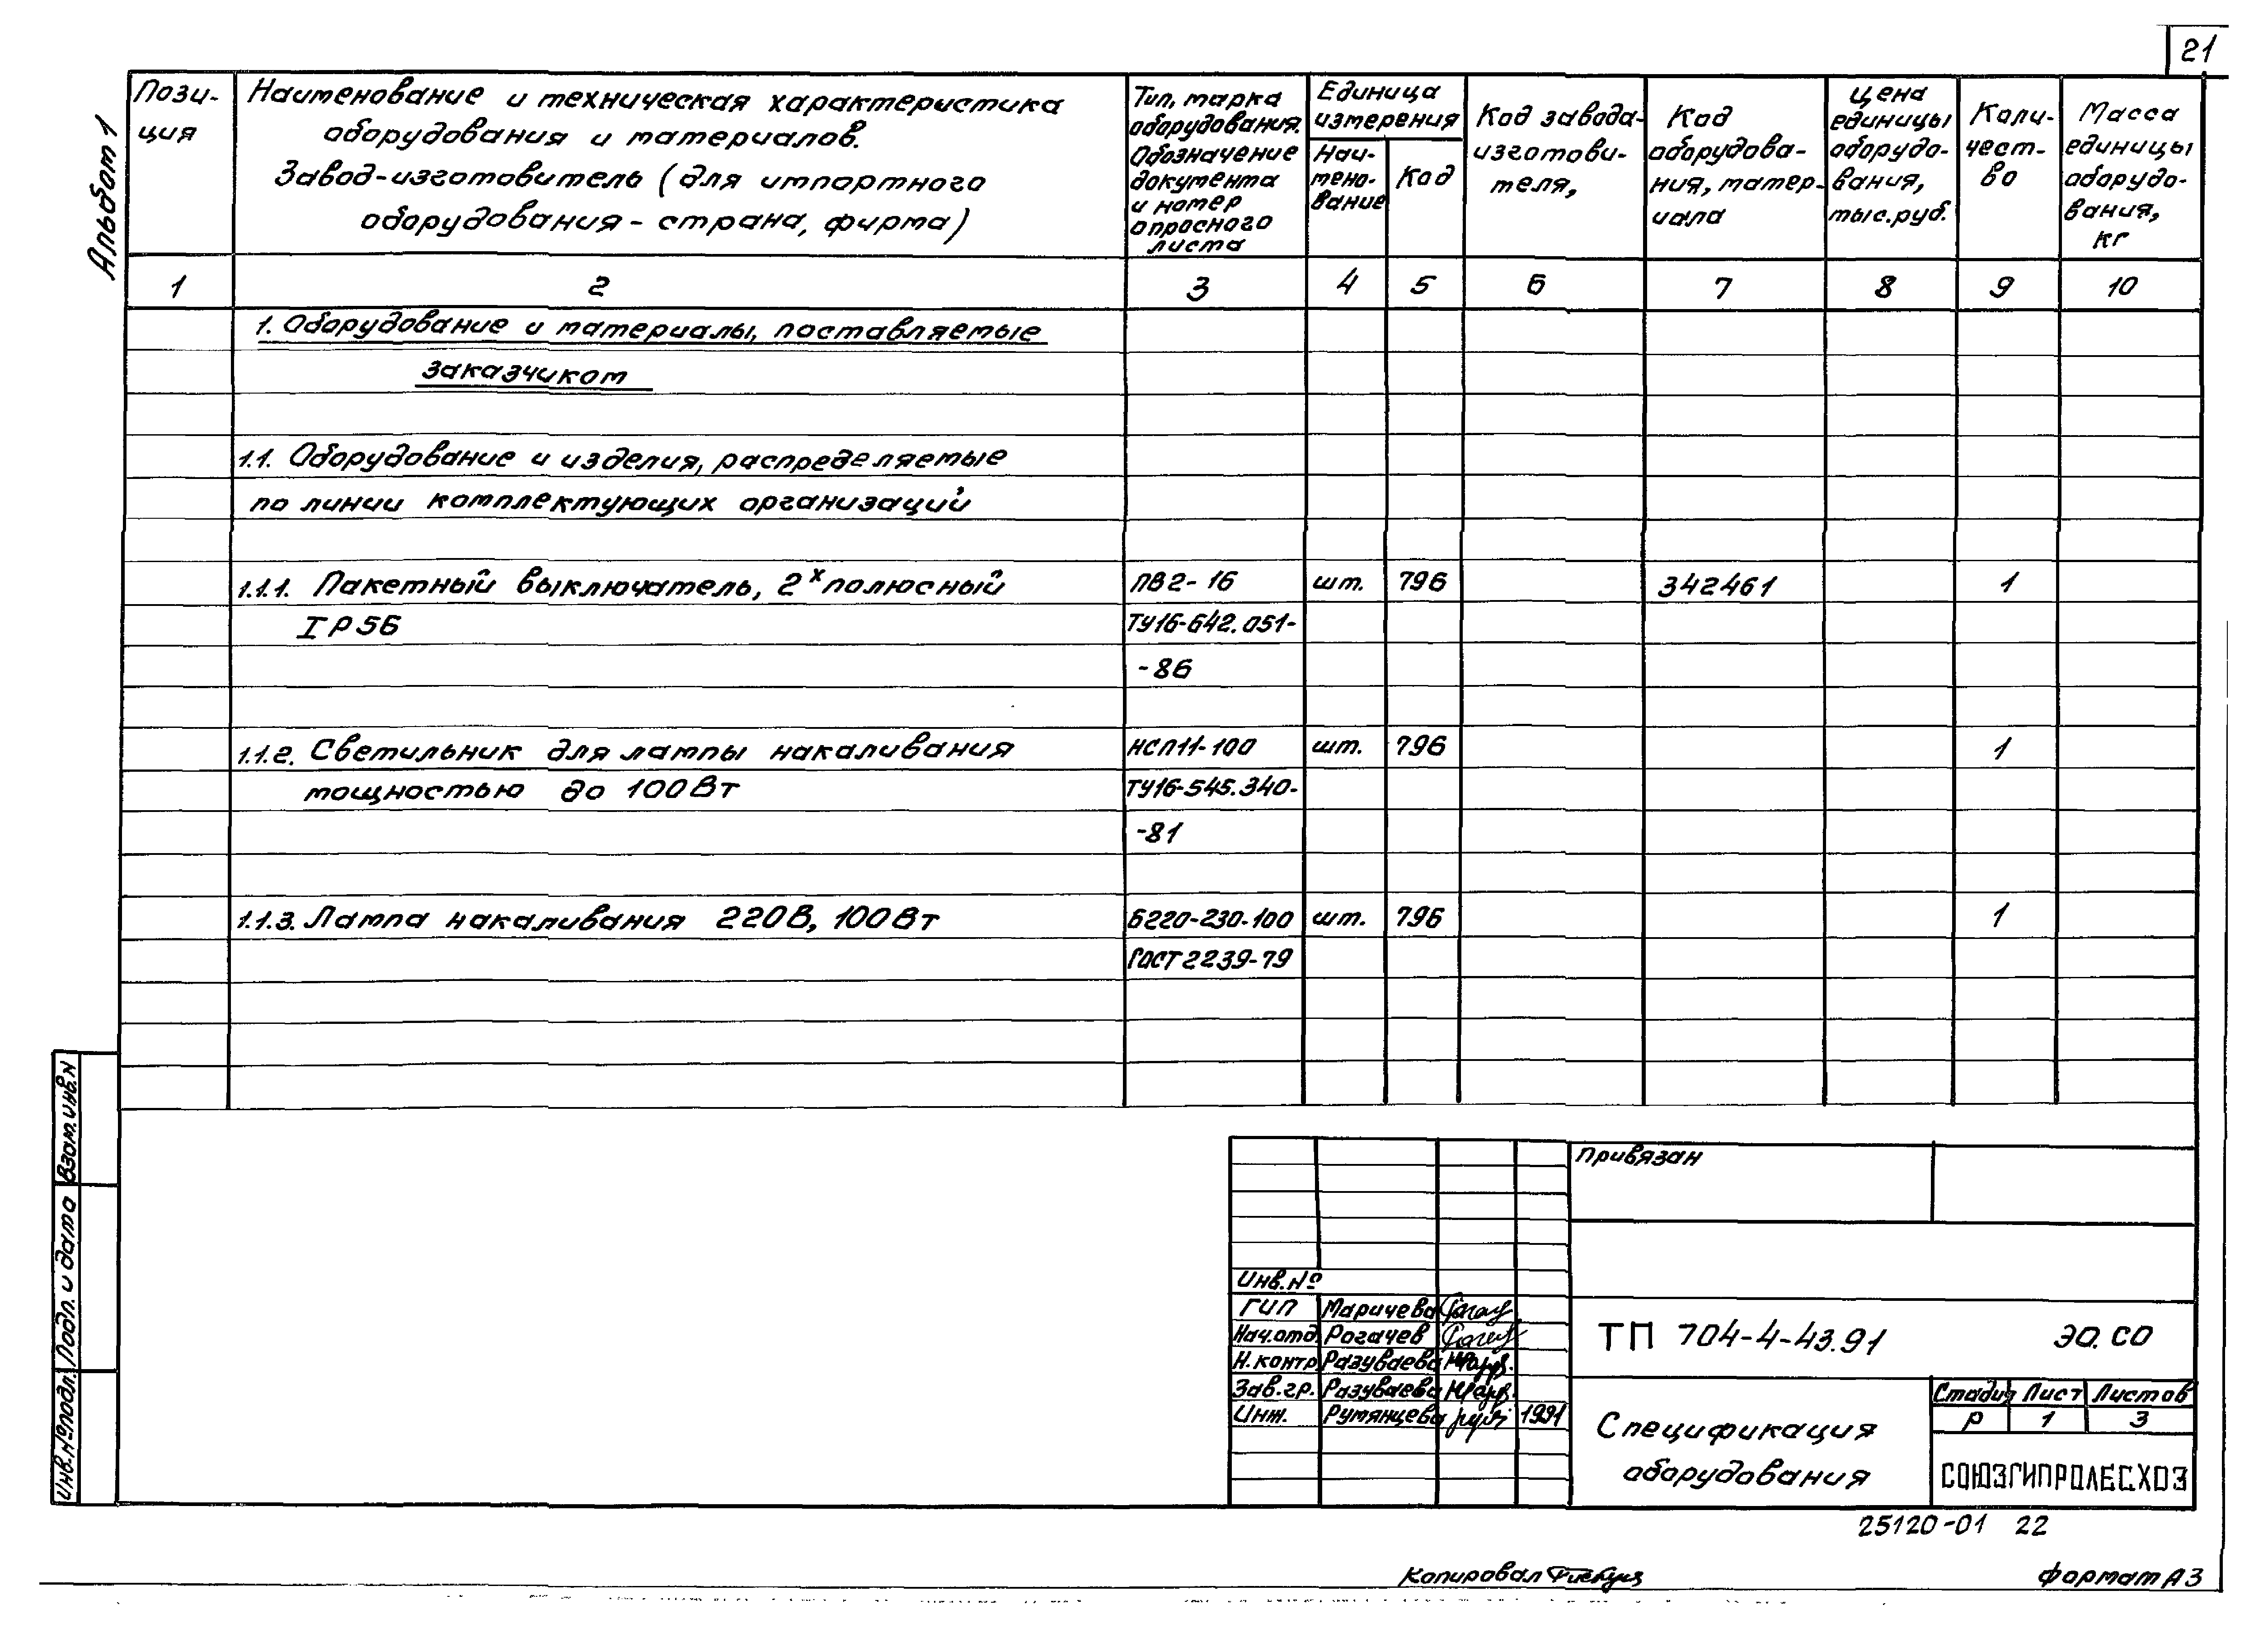 21
Альбом 1
Пози-
ция
Наименование и техническая характеристика
оборудования и материалов.
Завод-изготовитель (для импортного
оборудования - страна, фирма)
Тип, марка
оборудования.
Обозначение
документа
и номер
опросного
листа
Единица
измерения
Наи-
мено-
вание
Код
Код завода-
изготови-
теля,
Код
оборудова-
ния, матер-
иала
Цена
единицы
оборудо-
вания,
тыс.руб.
Коли-
чест-
во
Масса
единицы
оборудо-
вания,
кг
1 2 3 4 5 6 7 8 9 10
1. Оборудование и материалы, поставляемые
заказчиком
1.1. Оборудование и изделия, распределяемые
по линии комплектующих организаций
1.1.1. Пакетный выключатель, 2х полюсный ПВ2-16 шт. 796 342461 1
IP56 ТУ16-642.051-
-86
1.1.2. Светильник для лампы накаливания НСП11-100 шт. 796 1
мощностью до 100Вт ТУ16-545.340-
-81
1.1.3. Лампа накаливания 220В, 100Вт Б220-230-100 шт. 796 1
ГОСТ 2239-79
Взам.инв.N
Подп. и дата
Инв.№подл.
Привязан
Инв.№
ГИП Маричева
Нач.отд. Рогачев
Н.контр. Разуваева
Зав.гр. Разуваева
Инж. Румянцева 1991
ТП 704-4-43.91 ЭО.СО
Спецификация
оборудования
Стадия Лист Листов
Р 1 3
СОЮЗГИПРОЛЕСХОЗ
25120-01 22
Копировал
Формат А3